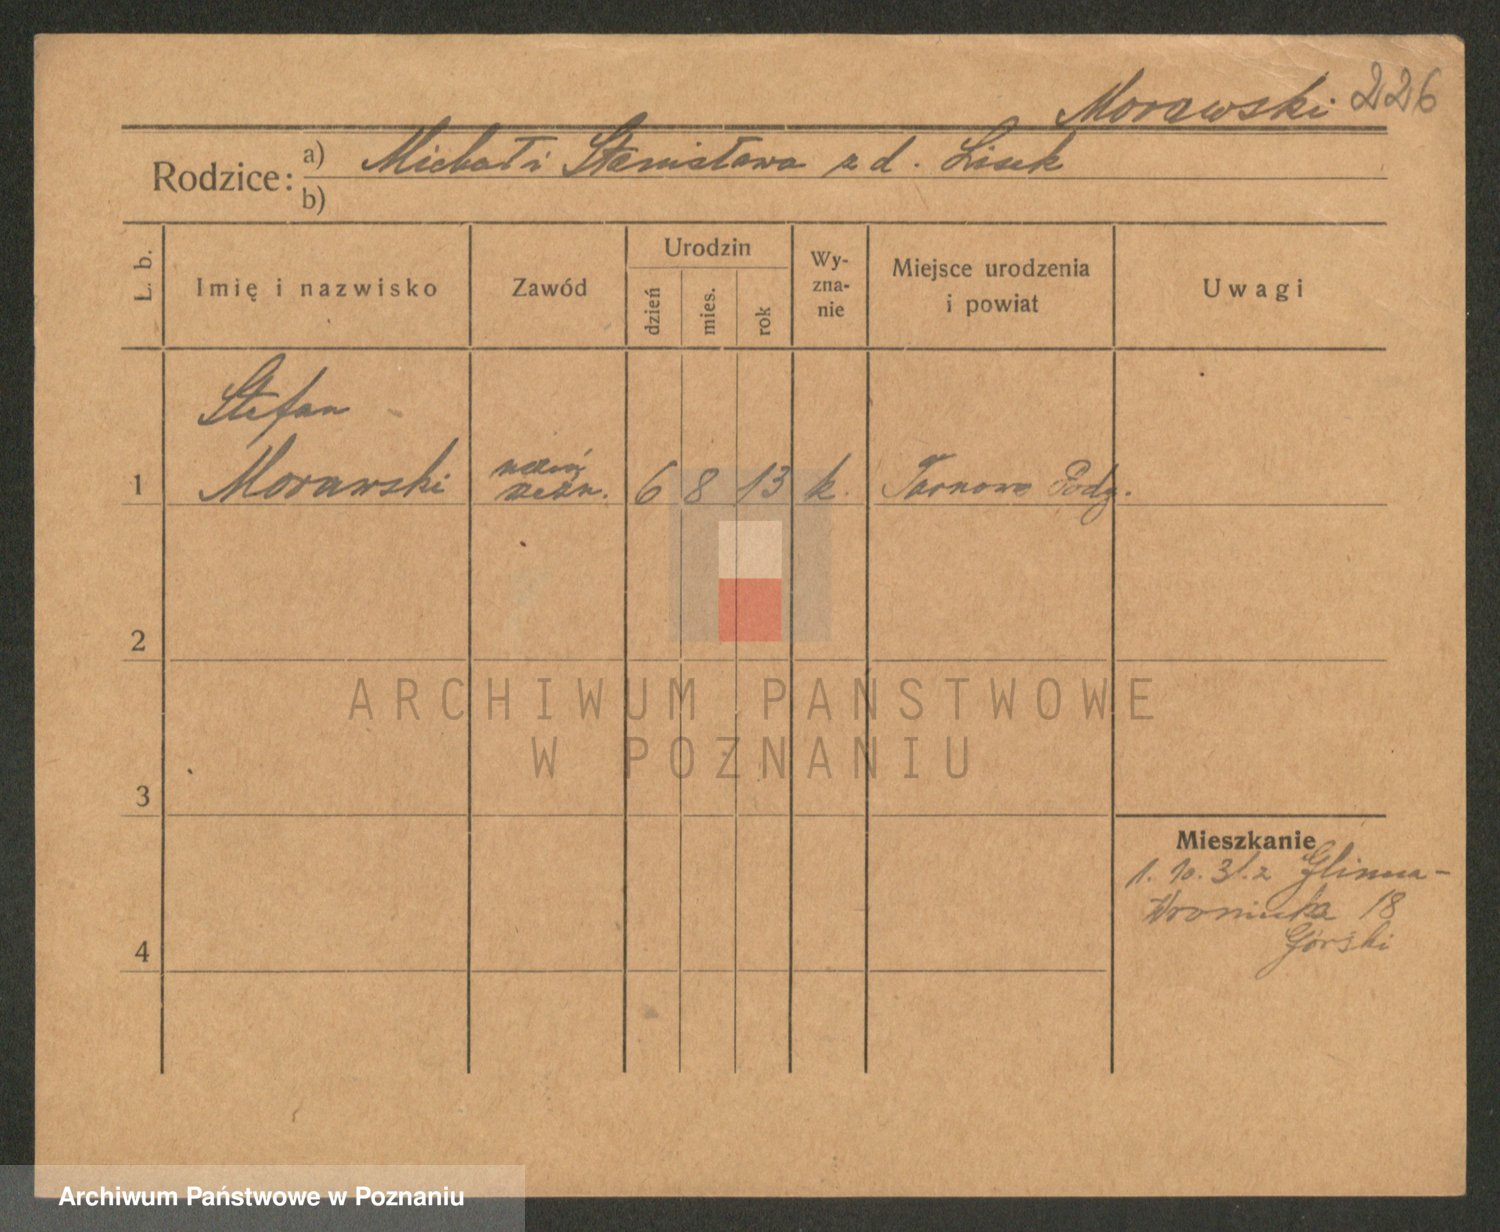 Morawski 226
Rodzice: a) Michał i Stanisława z d. Lisek
b)
L. b.
Imię i nazwisko
Zawód
Urodzin
dzień
mies.
rok
Wy-
zna-
nie
Miejsce urodzenia
i powiat
Uwagi
Stefan
1 Morawski
uczeń
rzeźn. 6 8 13 k. Tarnowo Podg.
2
3
4
Mieszkanie
1. 10. 31. z Glinna-
Wroniecka 18
Górski
ARCHIWUM PANSTWOWE
W POZNANIU
Archiwum Państwowe w Poznaniu